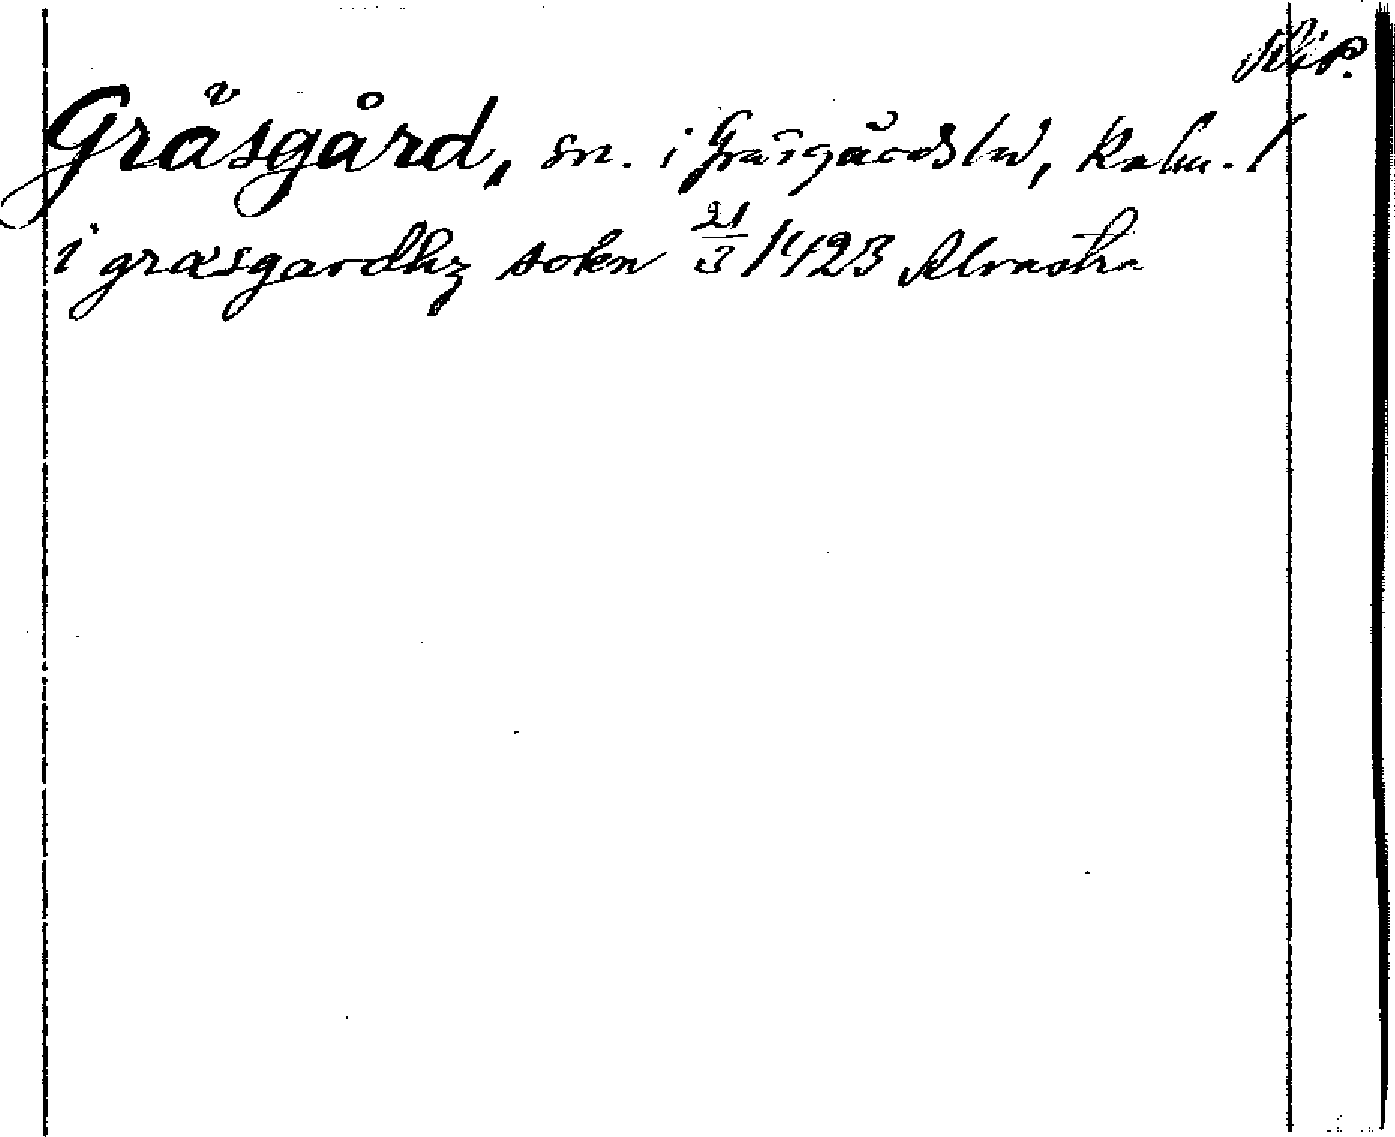 Rip.
Gräsgård, sn. i Gräsgårds hd, Kalm. l
i græsgardhz sokn 21/3 1423